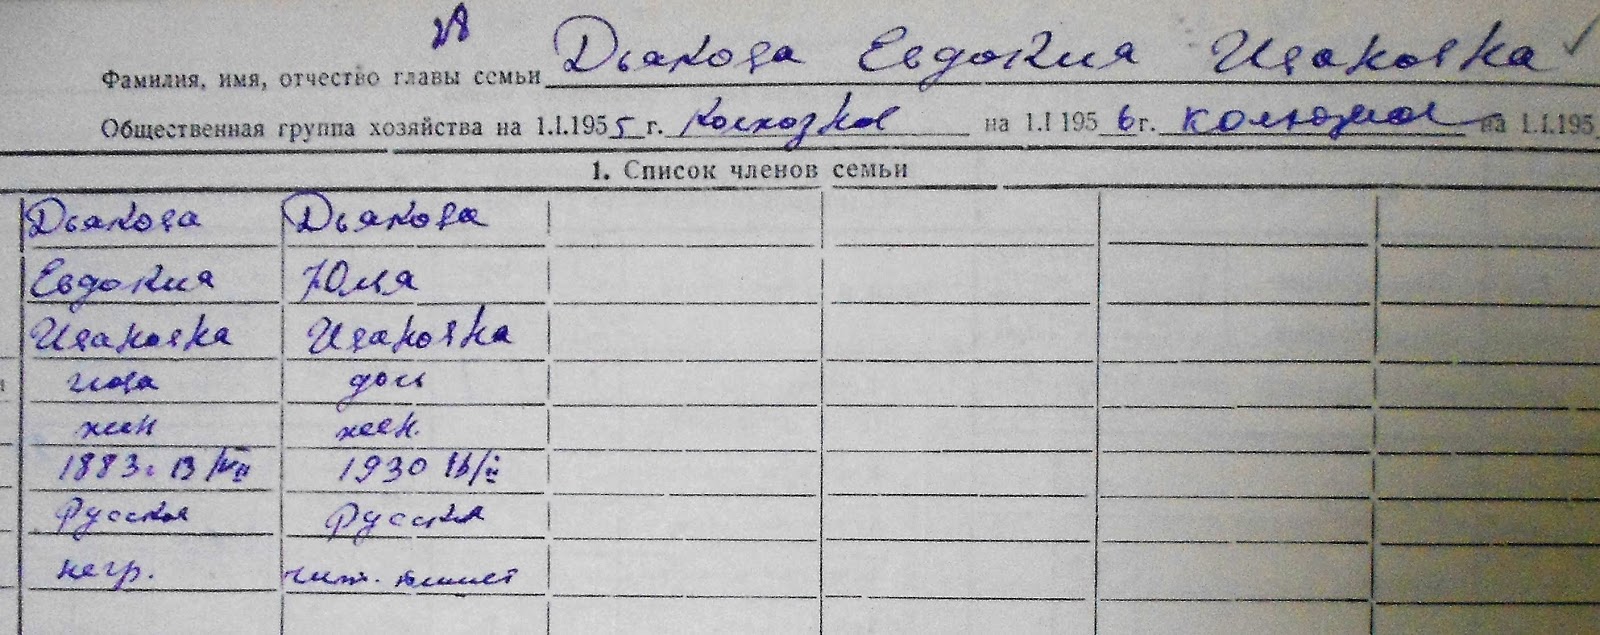 28
Фамилия, имя, отчество главы семьи Дьякова Евдокия Ивановна
Общественная группа хозяйства на 1.I.1955 г. Колхозное на 1.I 1956 г. колхозное на 1.I.195
1. Список членов семьи
Дьякова Дьякова
Евдокия Юлия
Ивановна Ивановна
глава дочь
жен жен.
1883г. 13/VII 1930
Русская Русская
негр. чит. пишет